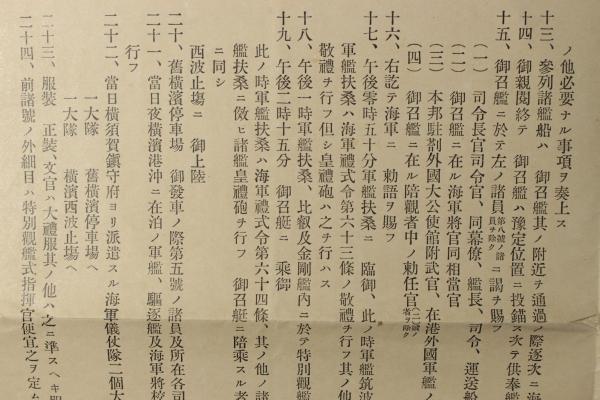 ノ他必要ナル事項ヲ奏上ス
十三、參列諸艦船ハ 御召艦其ノ附近ヲ通過ノ際逐次ニ海
十四、御親閲終テ 御召艦ハ豫定位置ニ投錨ス次テ供奉艦
十五、御召艦ニ於テ左ノ諸員(第八號ノ諸員ヲ除ク)ニ謁ヲ賜フ
(一) 司令長官司令官、同幕僚、艦長、司令、運送船
(二) 御召艦ニ在ル海軍將官同相當官
(三) 本邦駐剳外國大公使館附武官、在港外國軍艦ノ
(四) 御召艦ニ在ル陪觀者中ノ勅任官(〔二〕號ノ者ヲ除ク)
十六、右訖テ海軍ニ 勅語ヲ賜フ
十七、午後零時五十分軍艦扶桑ニ 臨御、此ノ時軍艦筑波
軍艦扶桑ハ海軍禮式令第六十三條ノ敬禮ヲ行フ其ノ他
敬禮ヲ行フ但シ皇禮砲ハ之ヲ行ハス
十八、午後一時軍艦扶桑、比叡及金剛艦内ニ於テ特別觀艦
十九、午後二時十五分 御召艇ニ 乘御
此ノ時軍艦扶桑ハ海軍禮式令第六十四條、其ノ他ノ諸
艦扶桑ニ倣ヒ諸艦皇禮砲ヲ行フ 御召艇ニ陪乘スル者
ニ同シ
西波止塲ニ 御上陸
二十、舊橫濱停車場 御發車ノ際第五號ノ諸員及所在各司
二十一、當日夜橫濱港沖ニ在泊ノ軍艦、驅逐艦及海軍將校
行フ
二十二、當日橫須賀鎭守府ヨリ派遣スル海軍儀仗隊二個大
一大隊 舊橫濱停車場ヘ
一大隊 橫濱西波止塲ヘ
二十三、服裝 正裝、文官ハ大禮服其ノ他ハ之ニ準スヘキ服
二十四、前諸號ノ外細目ハ特別觀艦式指揮官便宜之ヲ定ム